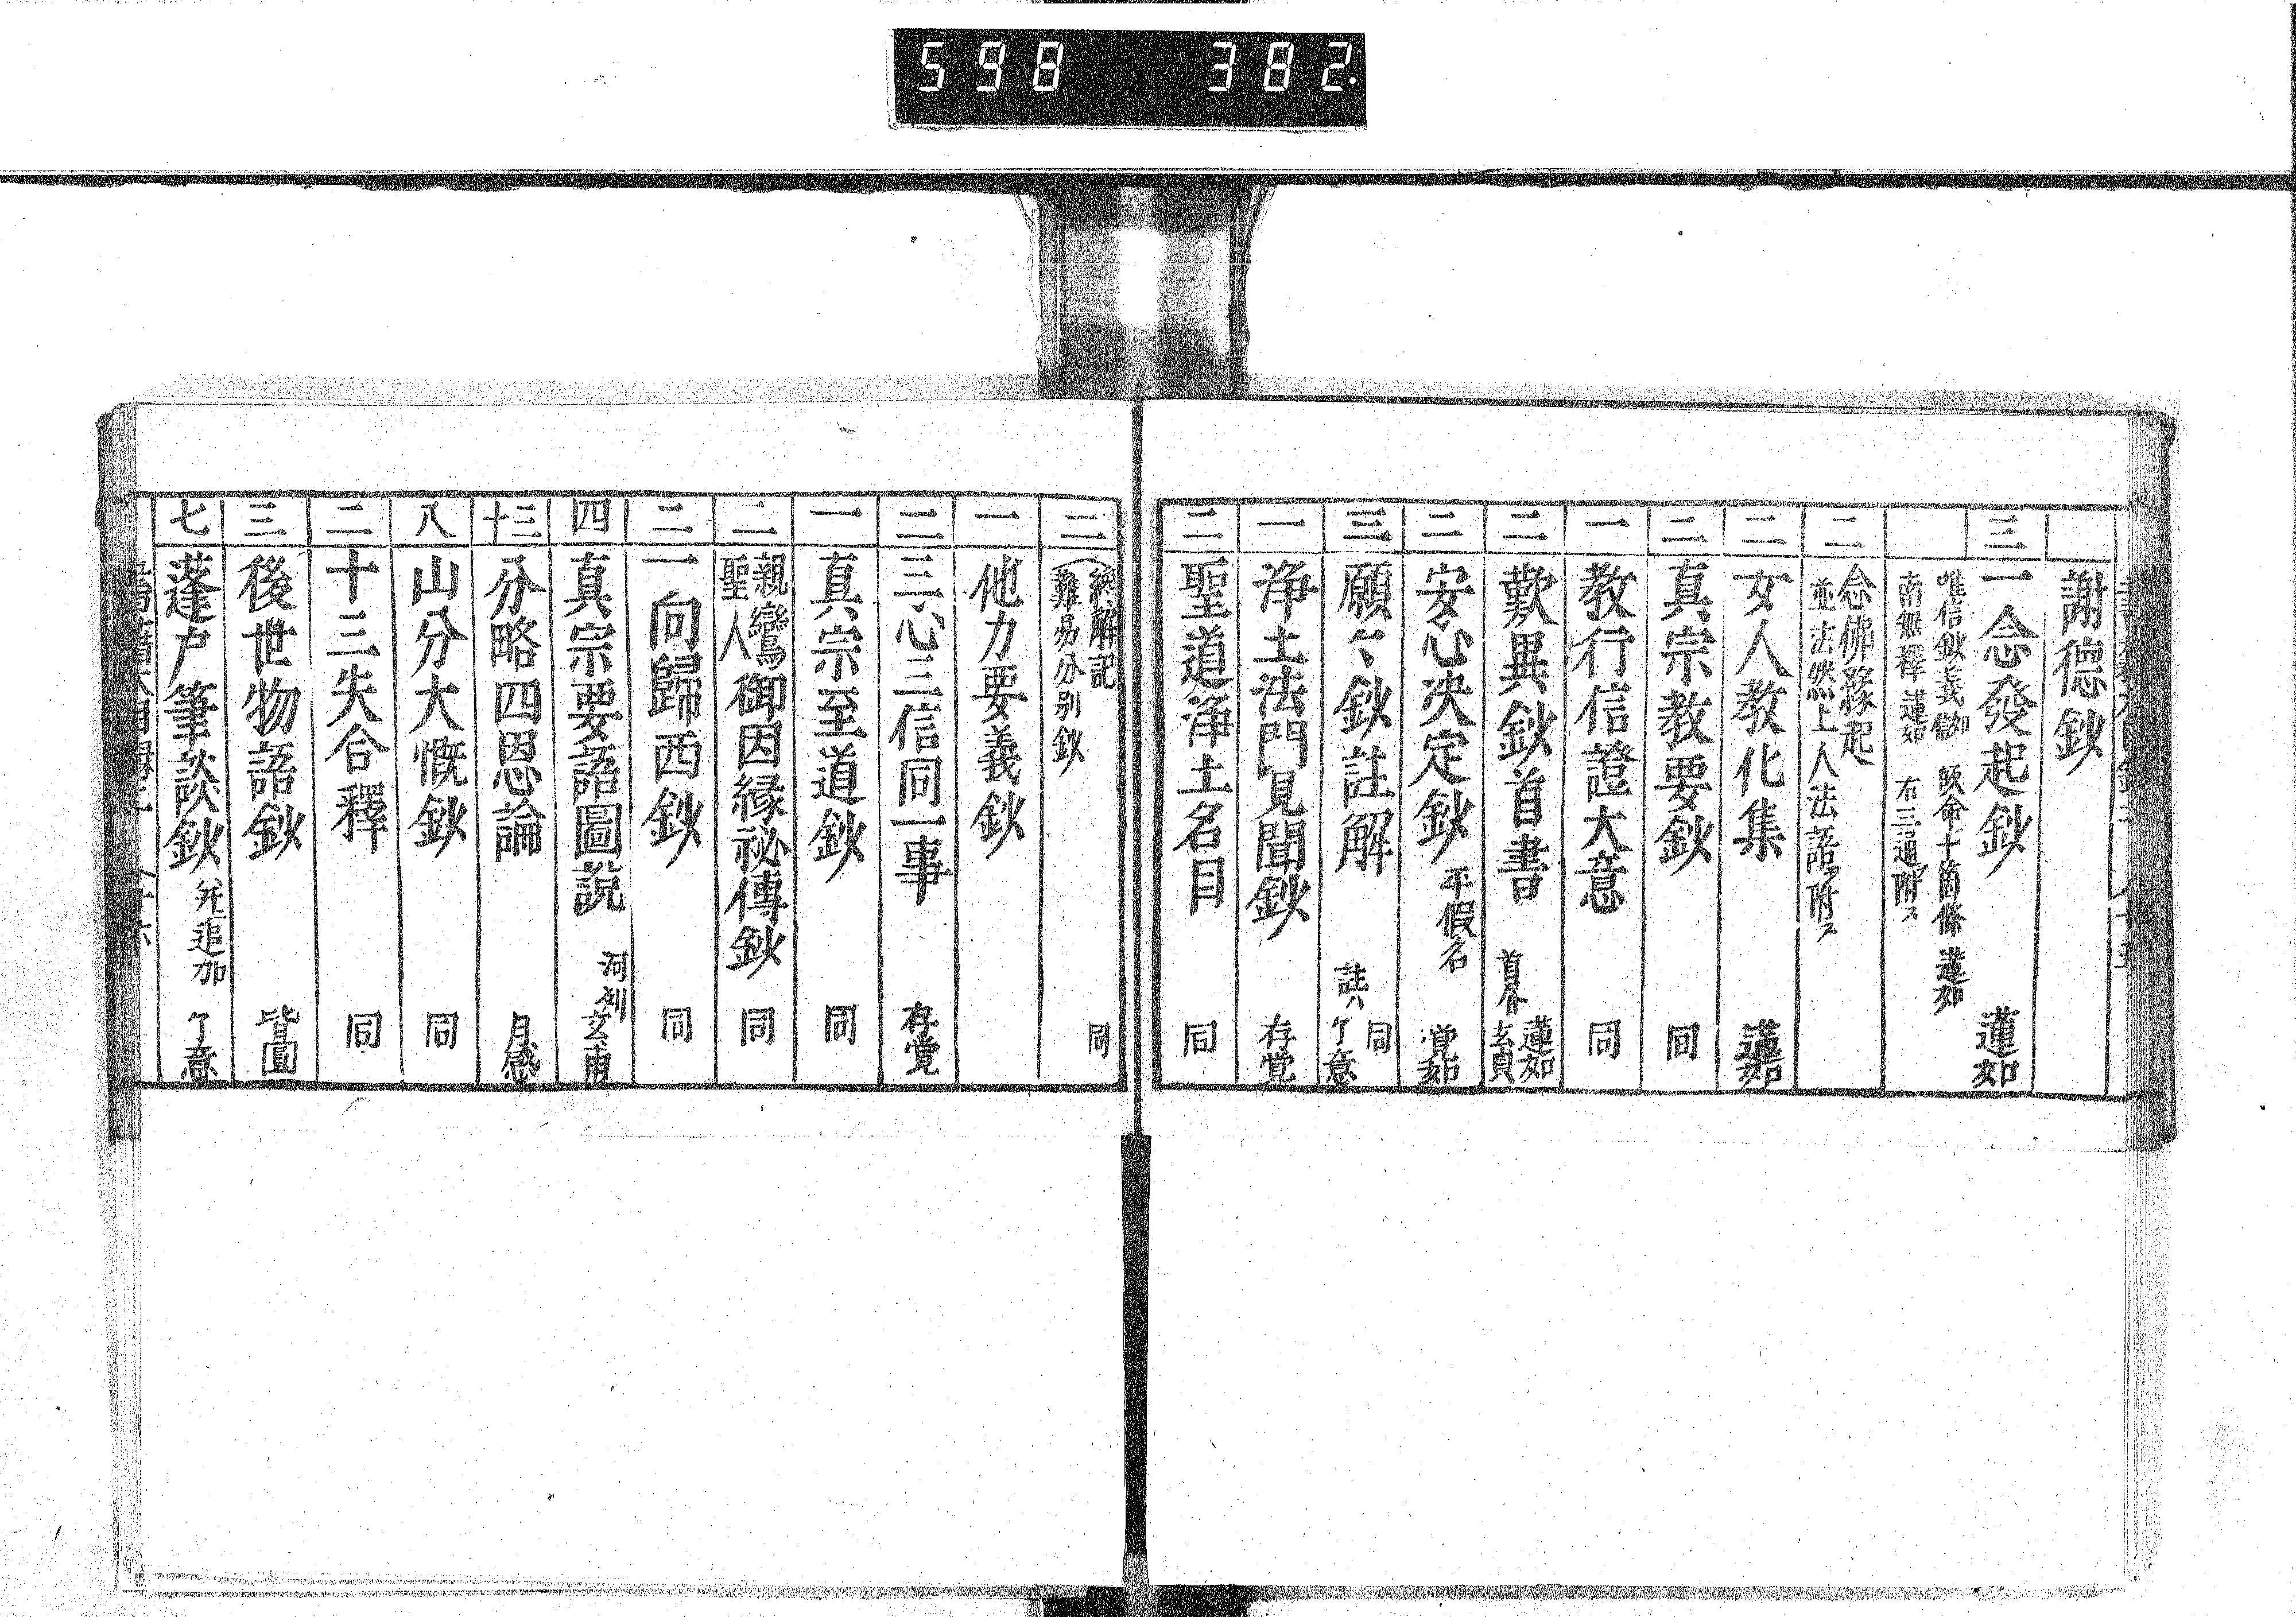 598 382.
謝德鈔
三 一念發起鈔 蓮如
唯信鈔義 蓮如 皈命十箇條 蓮如
南無釋 蓮如 右三通附ス
二 念佛緣起
並法然上人法語ヲ附ス
二 女人教化集 蓮如
二 真宗教要鈔 同
一 教行信證大意 同
二 歎異鈔首書 蓮如
首書 玄貞
二 安心决定鈔 平假名 覚如
三 願々鈔註解 同
註ハ 了意
一 浄土法門見聞鈔 存覚
二 聖道浄土名目 同
二 纔解記 同
難易分別鈔
一 他力要義鈔
二 三心三信同一事 存覚
一 真宗至道鈔 同
二 親鸞聖人御因縁祕傳鈔 同
二 一向歸西鈔 同
四 真宗要語圖説 河州 玄甫
十三 分略四恩論 月感
八 山分大慨鈔 同
二 十三失合釋 同
三 後世物語鈔 皆圓
七 蓬戸筆談鈔 并追加 了意